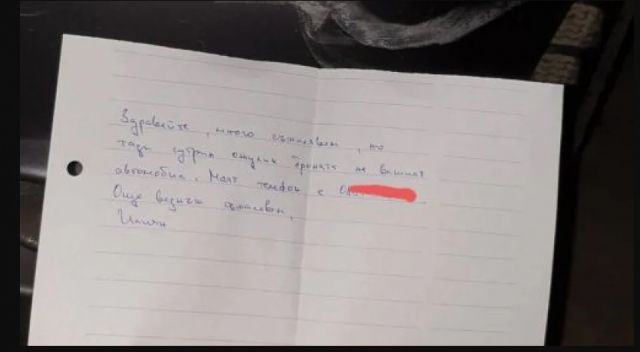 Здравейте, много съжалявам, но
тази сутрин ожулих бронята на вашият
автомобил. Моят телефон е
Още веднъж съжалявам,
Илиян